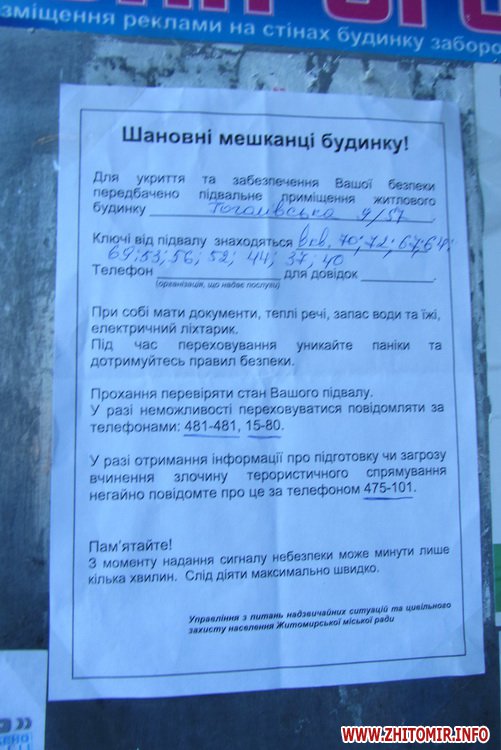 зміщення реклами на стінах будинку заборо
Шановні мешканці будинку!
Для укриття та забезпечення Вашої безпеки
передбачено підвальне приміщення житлового
будинку Гоголівська 9/57,
Ключі від підвалу знаходяться в кв. 70; 72; 67; 64;
69; 53; 56; 52; 44; 37; 40
Телефон для довідок
(організація, що надає послуги)
При собі мати документи, теплі речі, запас води та їжі,
електричний ліхтарик.
Під час переховування уникайте паніки та
дотримуйтесь правил безпеки.
Прохання перевіряти стан Вашого підвалу.
У разі неможливості переховуватися повідомляти за
телефонами: 481-481, 15-80.
У разі отримання інформації про підготовку чи загрозу
вчинення злочину терористичного спрямування
негайно повідомте про це за телефоном 475-101.
Пам'ятайте!
З моменту надання сигналу небезпеки може минути лише
кілька хвилин. Слід діяти максимально швидко.
Управління з питань надзвичайних ситуацій та цивільного
захисту населення Житомирської міської ради
WWW.ZHITOMIR.INFO